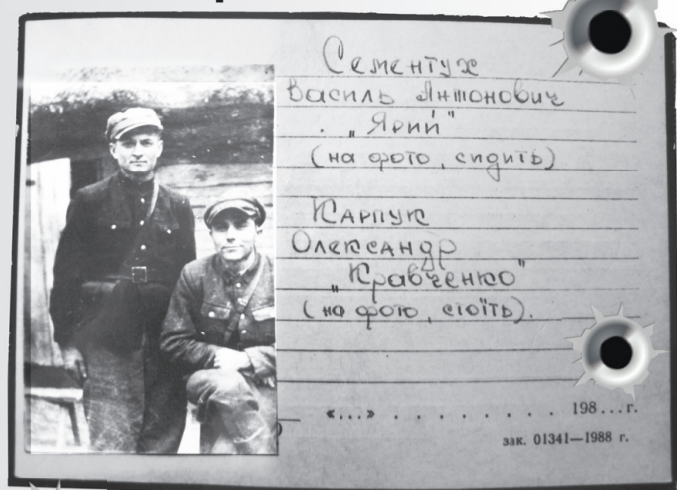 Сементух
Василь Антонович
"Ярий"
(на фото, сидить)
Карпук
Олександр
"Кравченко"
(на фото, стоїть).
«...» . . . . . . . . 198...г.
зак. 01341—1988 г.